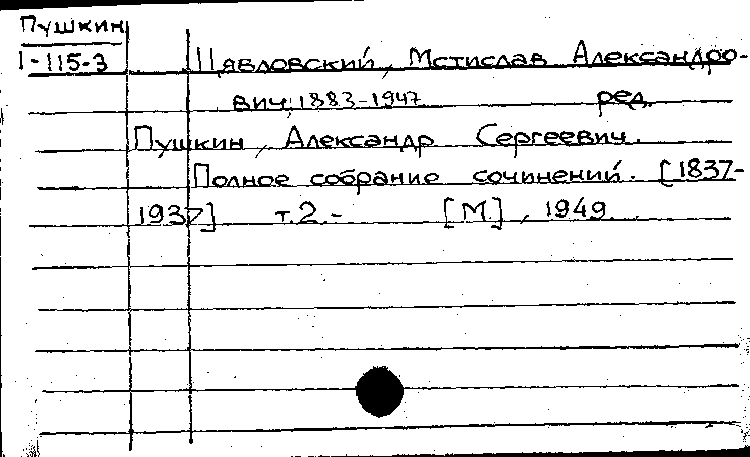 Пушкин
I-115-3
Цявловский, Мстислав Александро-
вич, 1883-1947 ред.
Пушкин, Александр Сергеевич.
Полное собрание сочинений. [1837-
1937] т.2.- [М], 1949